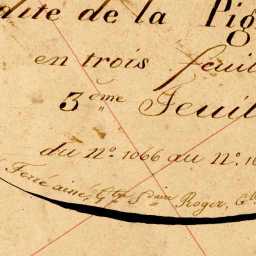 dite de la Pig
en trois feuil
3ème Feuil
du N° 1066 au N° 1
Ferré ainé, Gtre Sre Roger, G